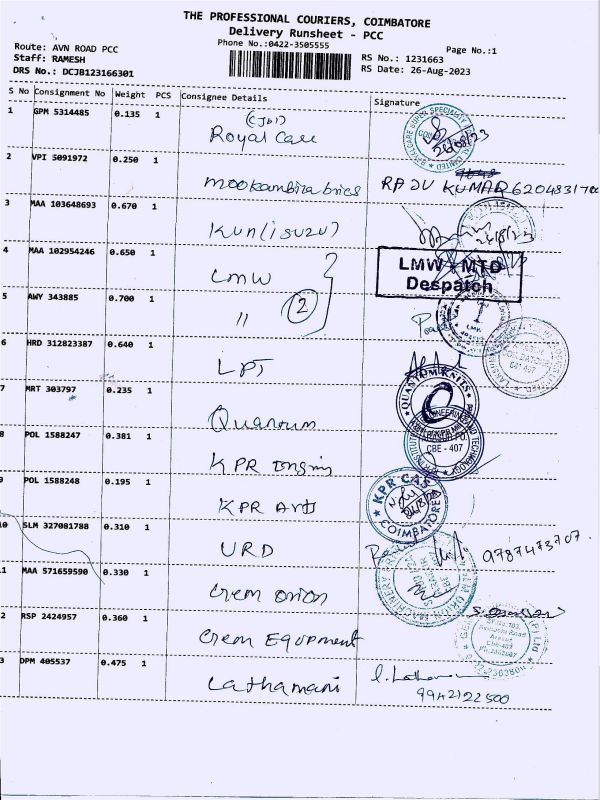 THE PROFESSIONAL COURIERS, COIMBATORE
Delivery Runsheet - PCC
Phone No.:0422-3505555
Page No.:1
Route: AVN ROAD PCC
Staff: RAMESH
DRS No.: DCJB123166301
RS No.: 1231663
RS Date: 26-Aug-2023
S No Consignment No Weight PCS Consignee Details Signature
1 GPM 5314485 0.135 1
Royal Care
26/08/23
2 VPI 5091972 0.250 1
mookambika brics RAJU KUMAR 620483170
3 MAA 103648693 0.670 1
KUN (isuzu)
4 MAA 102954246 0.650 1
LMW
LMW - MTD
Despatch
5 AWY 343885 0.700 1
" 2
LMW
6 HRD 312823387 0.640 1
LPT
641 407
7 MRT 303797 0.235 1
Quantum
QUANTUM KNITS
8 POL 1588247 0.381 1
KPR Engg
CBE - 407
9 POL 1588248 0.195 1
KPR Arts
KPR CAS
COIMBATORE
10 SLM 327081788 0.310 1
URD 9787473707
11 MAA 571659590 0.330 1
Gem Orion
12 RSP 2424957 0.360 1
Gem Equpment
13 DPM 405537 0.475 1
Lathamani
9942122500